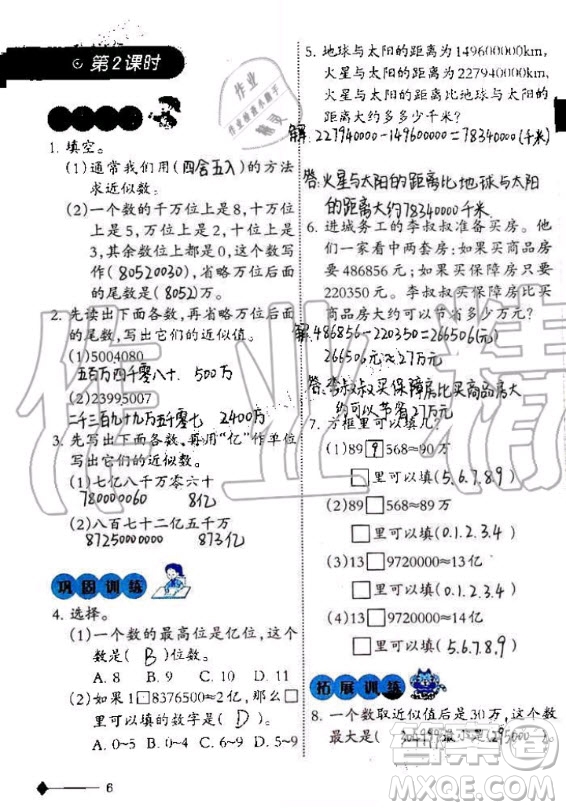 第2课时
1. 填空。
(1)通常我们用(四舍五入)的方法
求近似数。
(2)一个数的千万位上是8,十万位
上是5,万位上是2,十位上是
3,其余数位上都是0,这个数写
作(80520030),省略万位后面
的尾数是(8052)万。
2. 先读出下面各数,再省略万位后面
的尾数,写出它们的近似值。
(1)5004080
五百万四千零八十. 500万
(2)23995007
二千三百九十九万五千零七 2400万
3. 先写出下面各数,再用“亿”作单位
写出它们的近似数。
(1)七亿八千万零六十
780000060 8亿
(2)八百七十二亿五千万
87250000000 873亿
巩固训练
4. 选择。
(1)一个数的最高位是亿位,这个
数是(B)位数。
A. 8 B. 9 C. 10 D. 11
(2)如果1□8376500≈2亿,那么□
里可以填的数字是(D)。
A. 0~5 B. 0~4 C. 4~9 D. 5~9
6
5. 地球与太阳的距离为149600000km,
火星与太阳的距离为227940000km,
火星与太阳的距离比地球与太阳的
距离大约多多少千米?
解:227940000-149600000=78340000(千米)
答:火星与太阳的距离比地球与太阳
的距离大约78340000千米.
6. 进城务工的李叔叔准备买房。他
们一家看中两套房:如果买商品房
要486856元;如果买保障房只要
220350元。李叔叔买保障房比买
商品房大约可以节省多少万元?
解:486856-220350=266506(元)
266506元≈27万元
答:李叔叔买保障房比买商品房大
约可以节省27万元.
7. 方框里可以填几?
(1)89 9 568≈90万
□里可以填(5.6.7.8.9)
(2)89□568≈89万
□里可以填(0.1.2.3.4)
(3)13□9720000≈13亿
□里可以填(0.1.2.3.4)
(4)13□9720000≈14亿
□里可以填(5.6.7.8.9)
拓展训练
8. 一个数取近似值后是30万,这个数
最大是(304999)最小是(295000)
作业精灵
答案圈
MXQE.COM